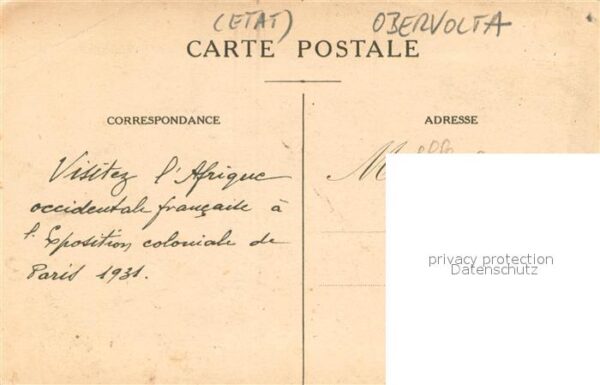 (ETAT) OBERVOLTA
CARTE POSTALE
CORRESPONDANCE
ADRESSE
Visitez l'Afrique
occidentale française à
l'Exposition coloniale de
Paris 1931.
M
privacy protection
Datenschutz